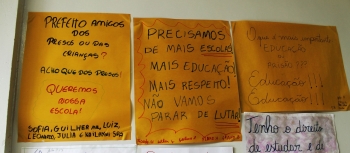 PREFEITO AMIGOS
DOS
PRESOS OU DAS
CRIANÇAS?
ACHO QUE DOS PRESOS!
QUEREMOS
NOSSA
ESCOLA!
SOFIA, GUILHERME, LUIZ,
JULIA
PRECISAMOS
DE MAIS ESCOLAS!
MAIS EDUCAÇÃO!
MAIS RESPEITO!
NÃO VAMOS
PARAR DE LUTAR!
O que é mais importante
EDUCAÇÃO
Educação!!!
Educação!!!
Tenho o direito
de estudar e de